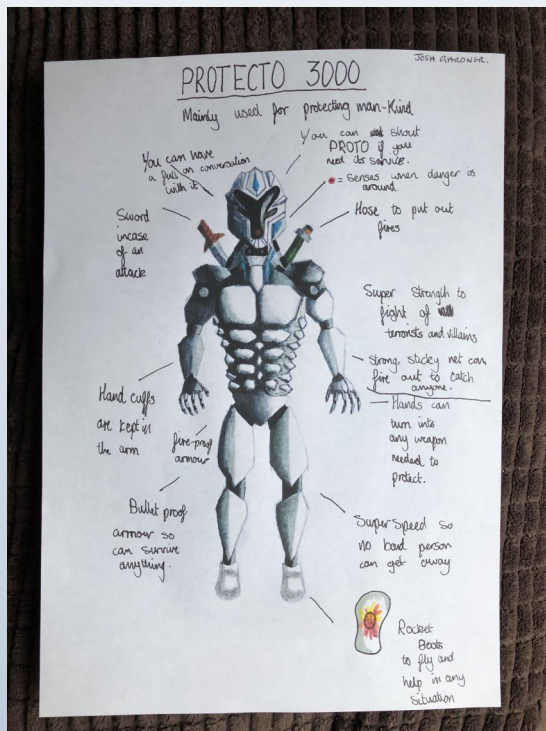 JOSH GARDNER.
PROTECTO 3000
Mainly used for protecting man-kind
You can have
a full on conversation
with it
You can shout
PROTO if you
need its service.
= Senses when danger is
around
Sword
incase
of an
attack
Hose to put out
fires
Super strength to
fight of
terrorists and villains
strong sticky net can
fire out to catch
anyone.
Hand cuffs
are kept in
the arm
fire-proof
armour
Hands can
turn into
any weapon
needed to
protect.
Bullet proof
armour so
can survive
anything.
Super Speed so
no bad person
can get away
Rocket
Boots
to fly and
help in any
situation